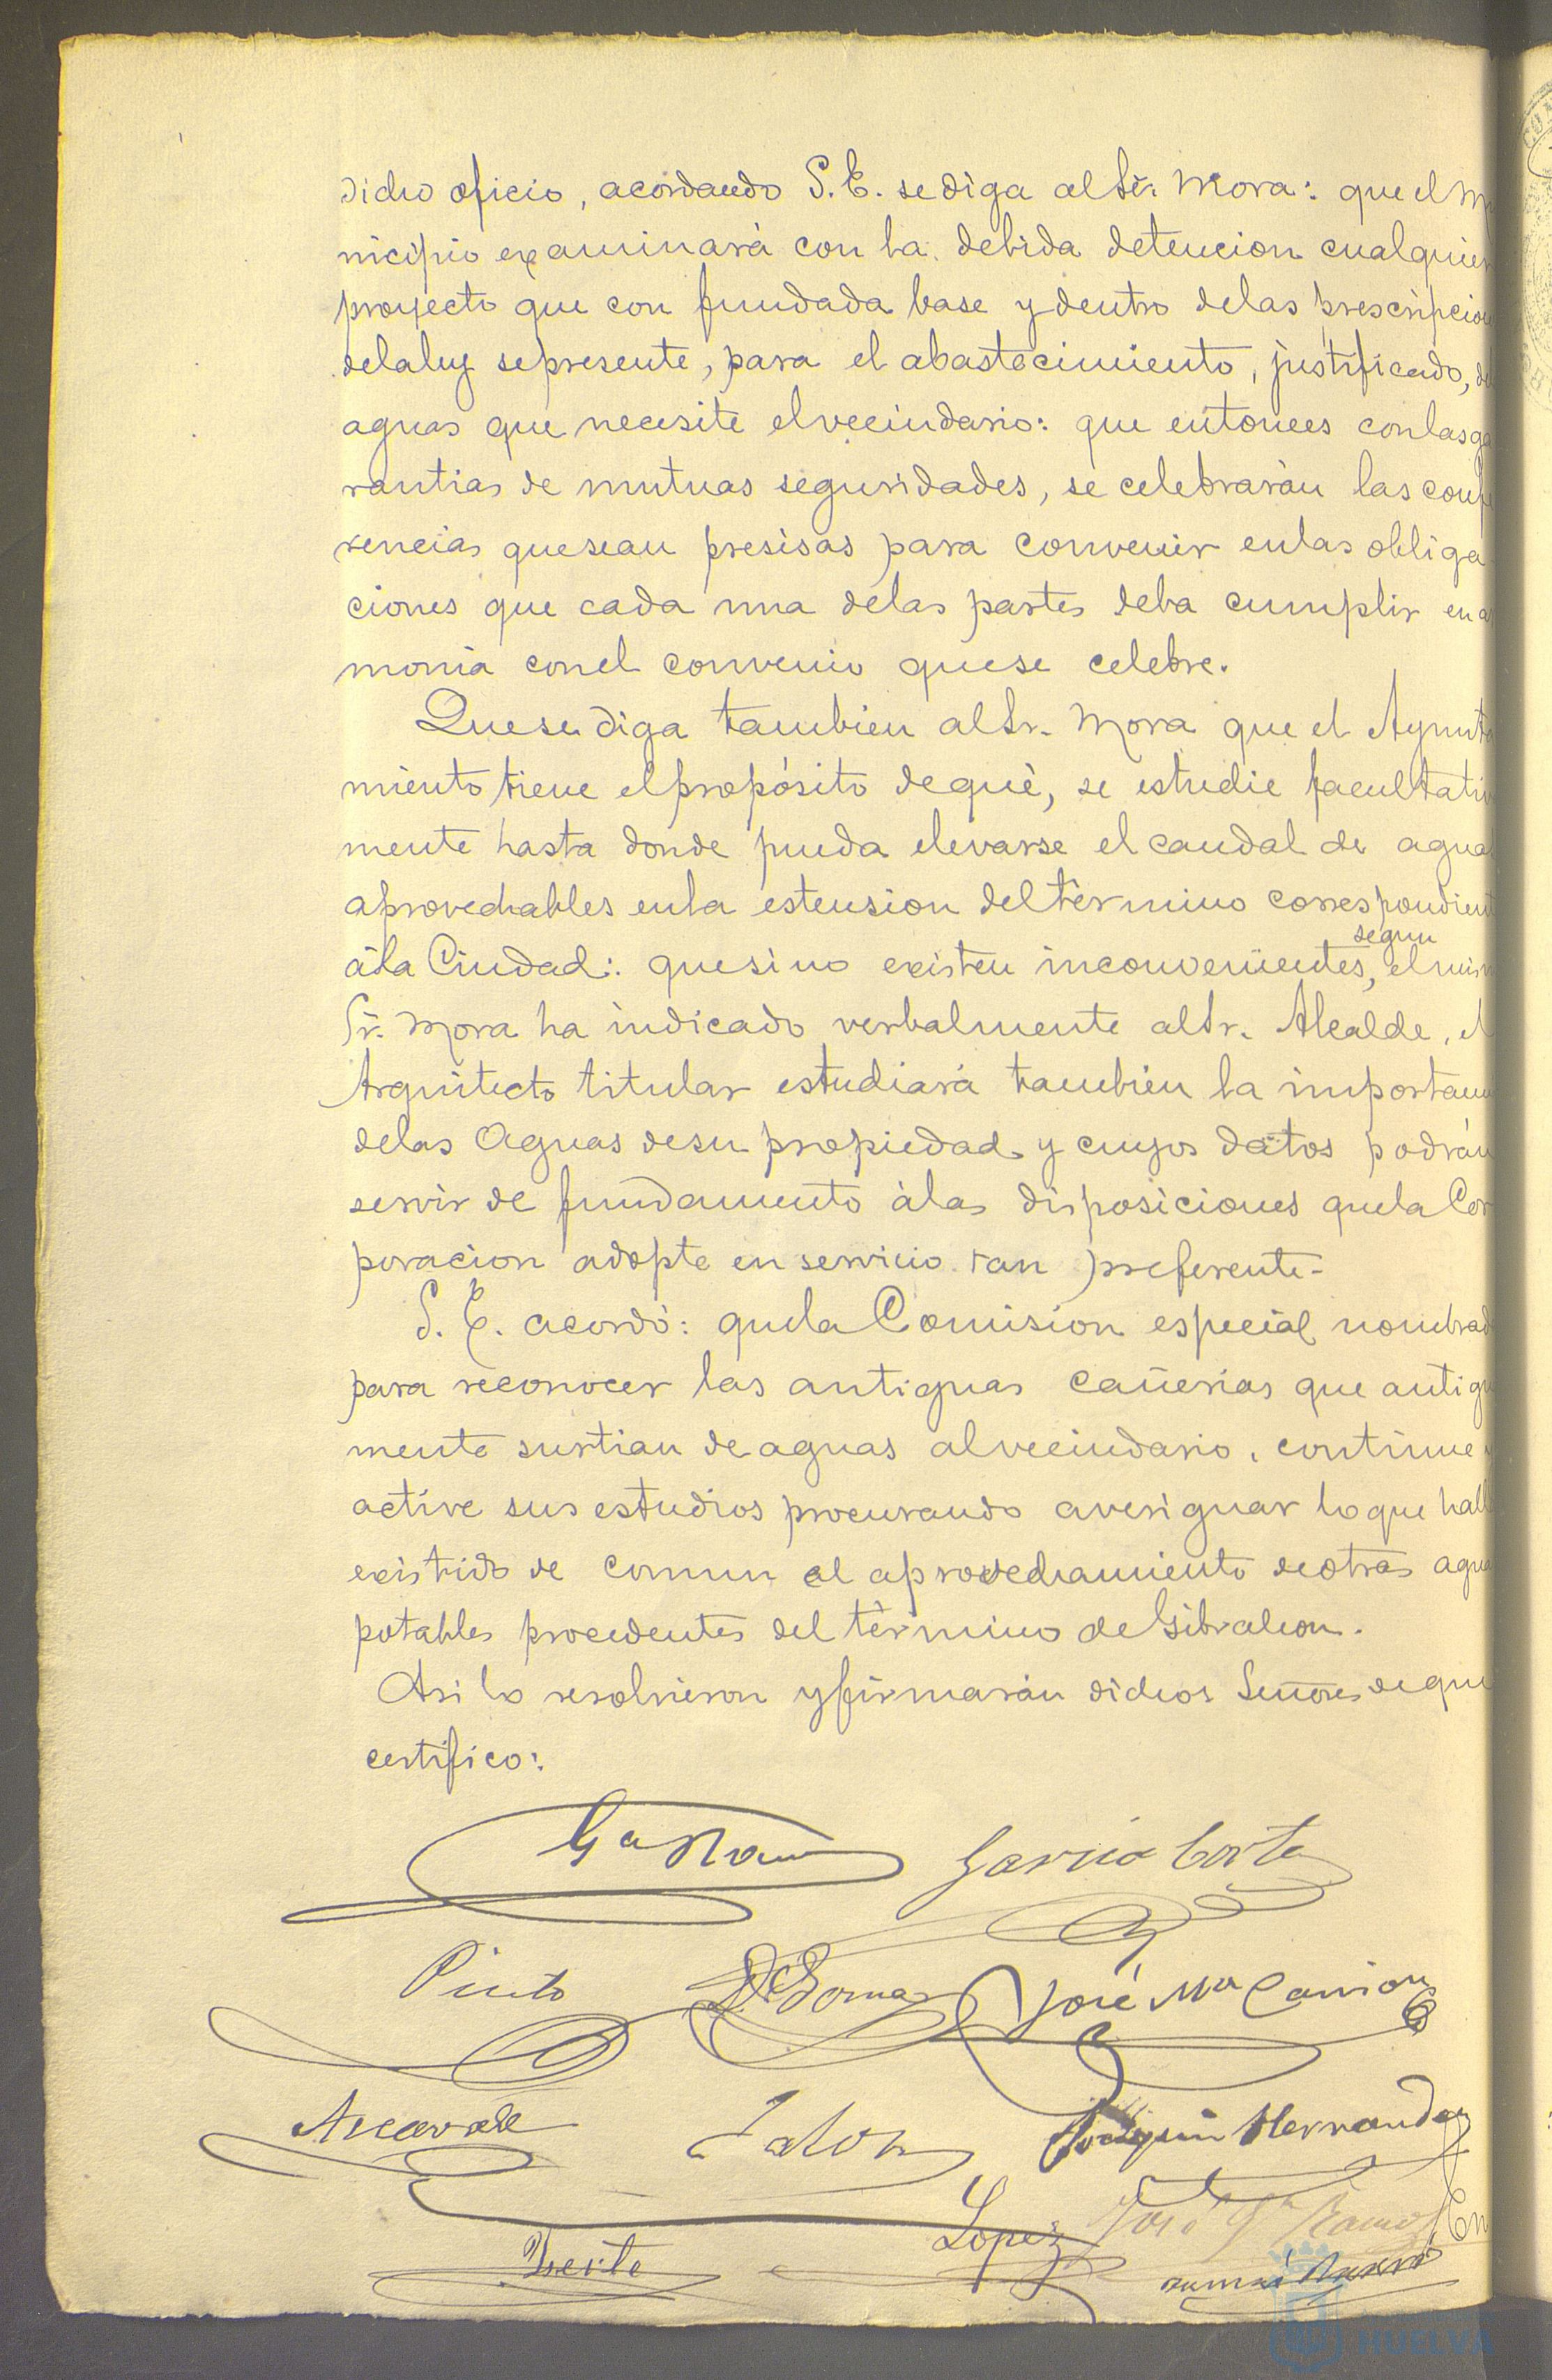 dicho oficio, acordando S. E. se diga al Sr. Mora: que el Mu
nicipio examinará con la debida detencion cualquier
proyecto que con fundada base y dentro delas prescripcion
dela ley se presente, para el abastecimiento, justificado, de
aguas que necesite el vecindario: que entonces con las ga
rantias de mutuas seguridades, se celebrarán las confe
rencias que sean presisas para convenir en las obliga
ciones que cada una delas partes deba cumplir en ar
monia con el convenio que se celebre.
Que se diga tambien al Sr. Mora que el Ayunta
miento tiene el propósito de què, se estudie facultativ
mente hasta donde pueda elevarse el caudal de aguas
aprovechables en la estension del tèrmino correspondient
à la Ciudad: que si no existen inconvenientes, segun el mism
Sr. Mora ha indicado verbalmente al Sr. Alcalde, el
Arquitecto titular estudiarà tambien la importan
delas Aguas de su propiedad y cuyos datos podrán
servir de fundamento àlas disposiciones que la Cor
poracion adopte en servicio tan preferente-
S. E. acordó: que la Comision especial nombrad
para reconocer las antiguas cañerias que antigu
mente surtian de aguas al vecindario, continue
active sus estudios procurando averiguar lo que hall
existido de comun el aprovechamiento de otras agua
potables procedentes del tèrmino de Gibraleon.
Asi lo resolvieron y firmarán dichos Señores de que
certifico:
Ga Ramos Garcia Corte
Pinto José Ma Carrion
Joaquin Hernandez
Lopez José Ga Ramos
HUELVA